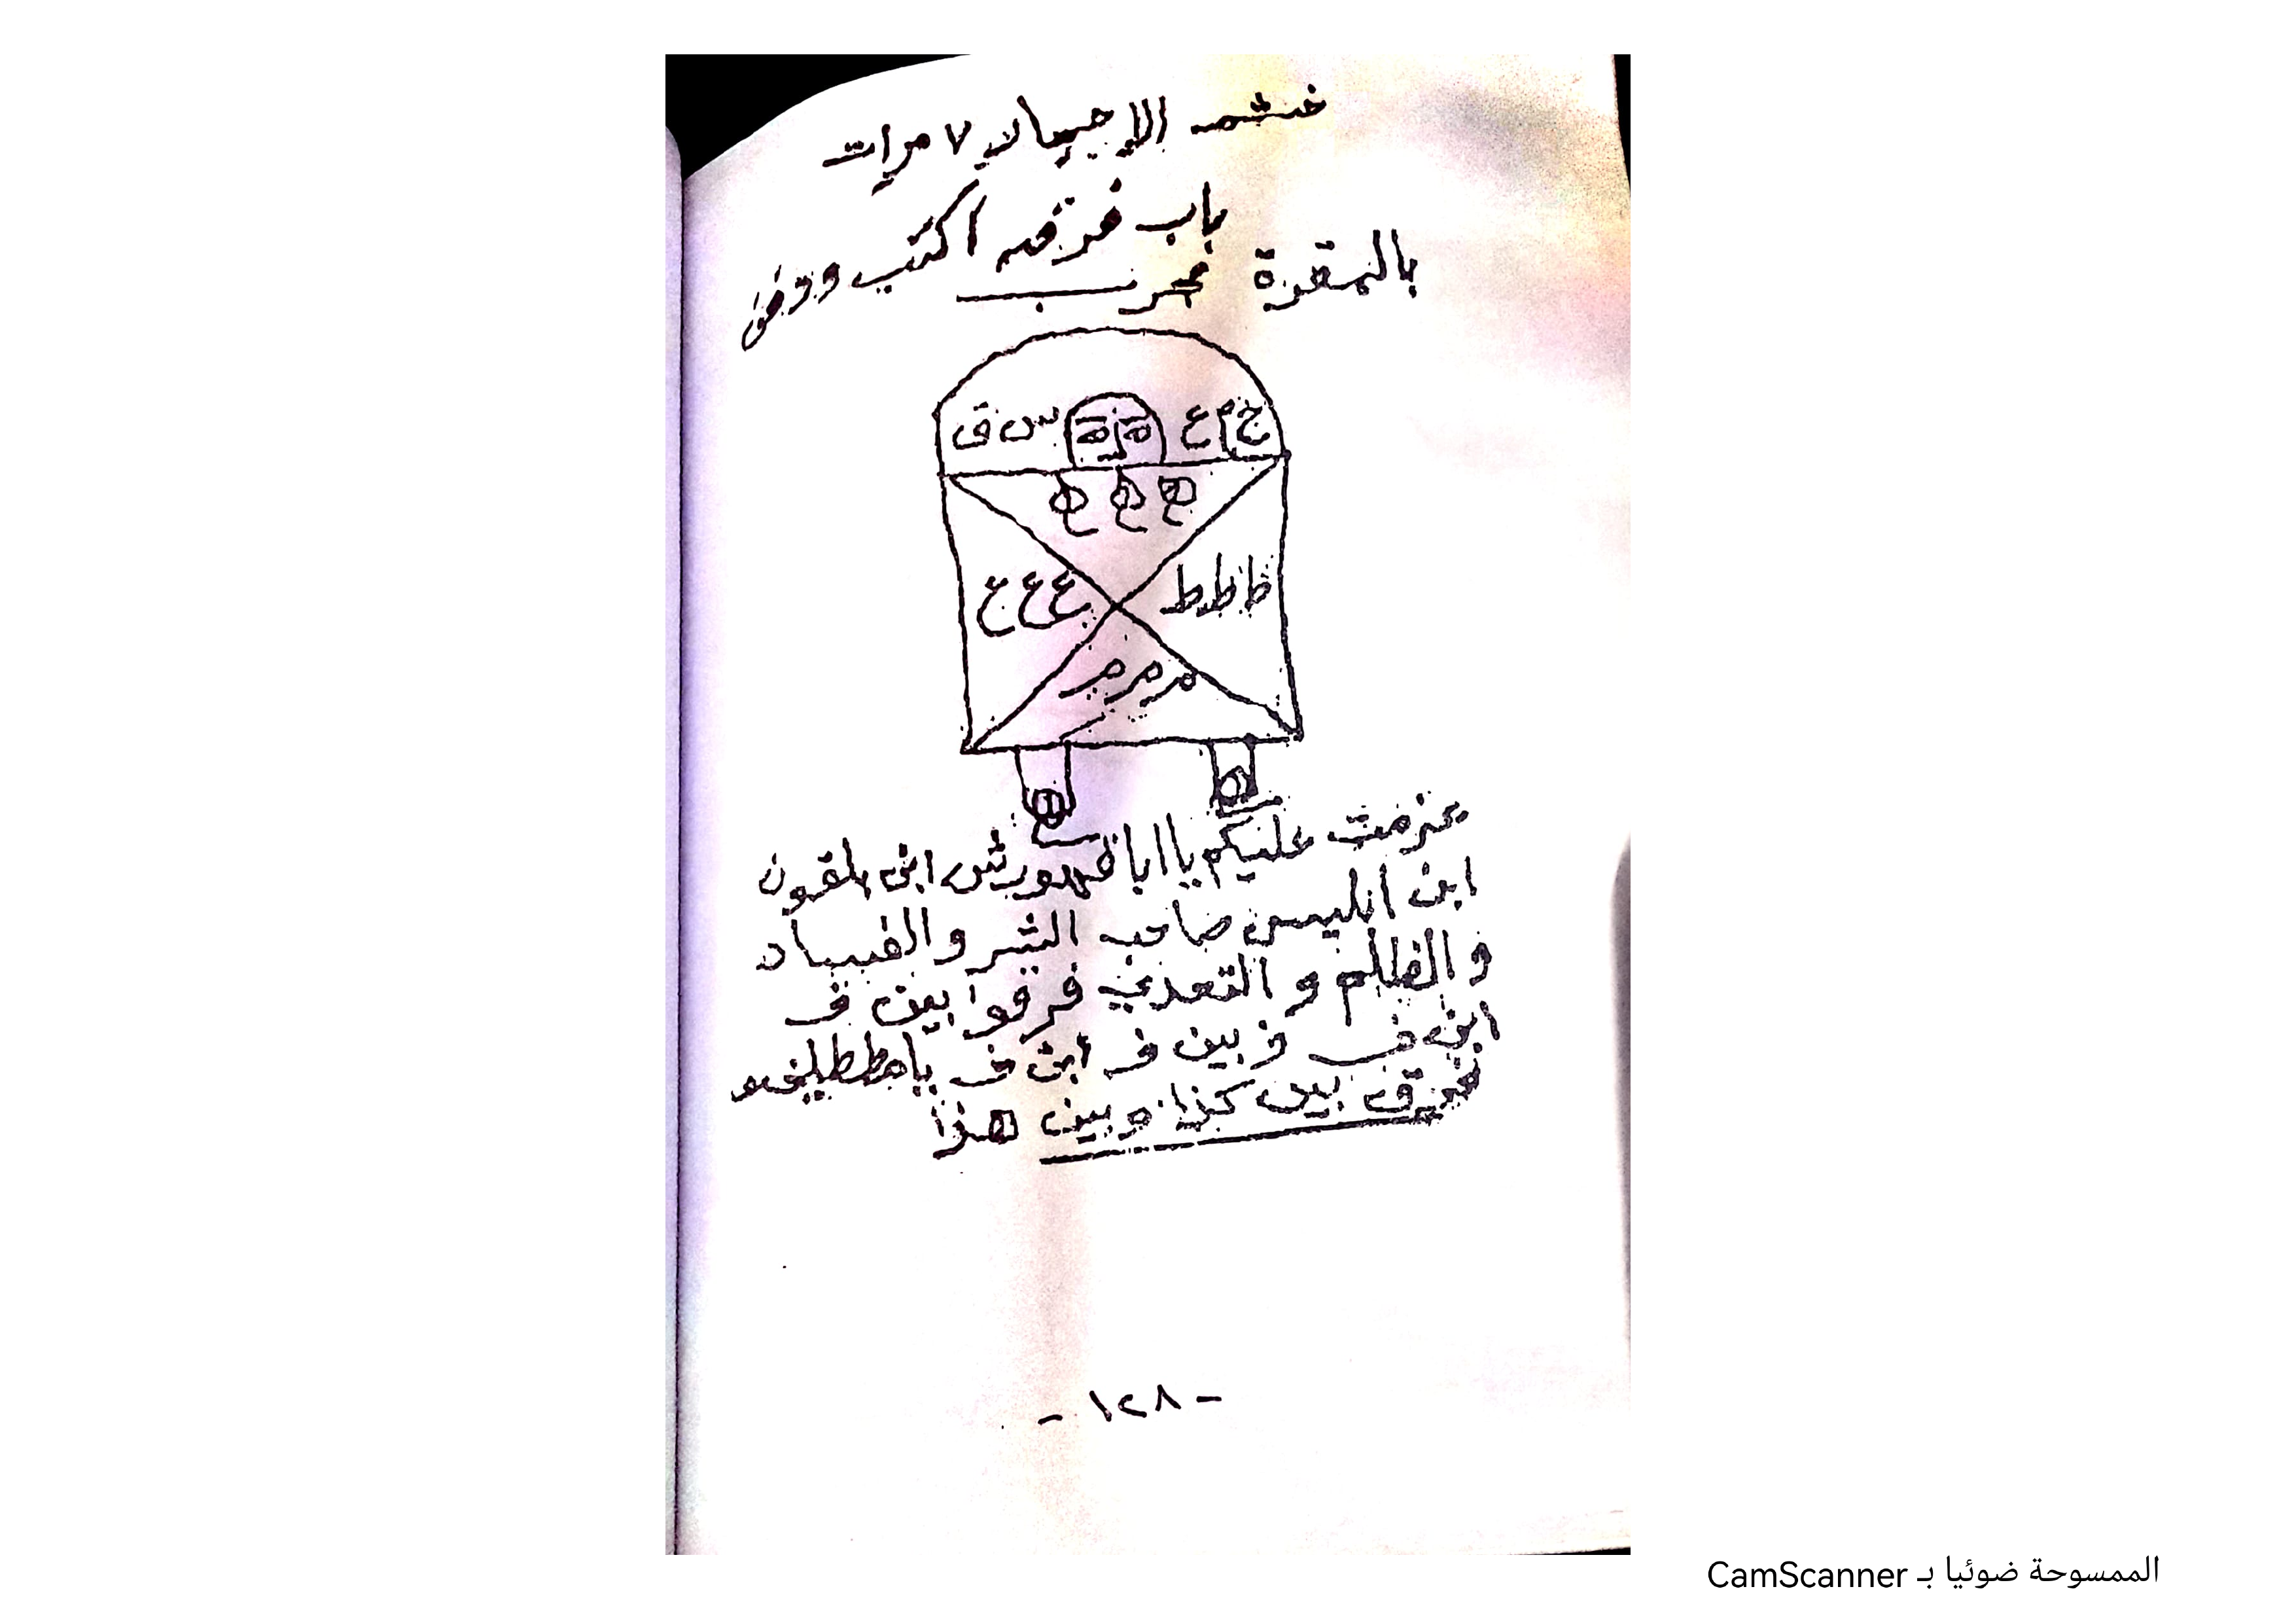 الاجيال ٧ مرات
باب فرقه اكتب ودفن
بالمقبرة مجرب
خ م ع ه ه س ق
ع ع ع
ط ط ط ع ع ع
م م م
عزمت عليكم يا ابا قهورش ابن بلقون
ابن ابليس صاحب الشر والفساد
والظلم والتعدي فرقوا بين ف
ابن ف وبين ف ابن ف
تفريق بين كذا وبين هذا
- ١٢٨ -
الممسوحة ضوئيا بـ CamScanner